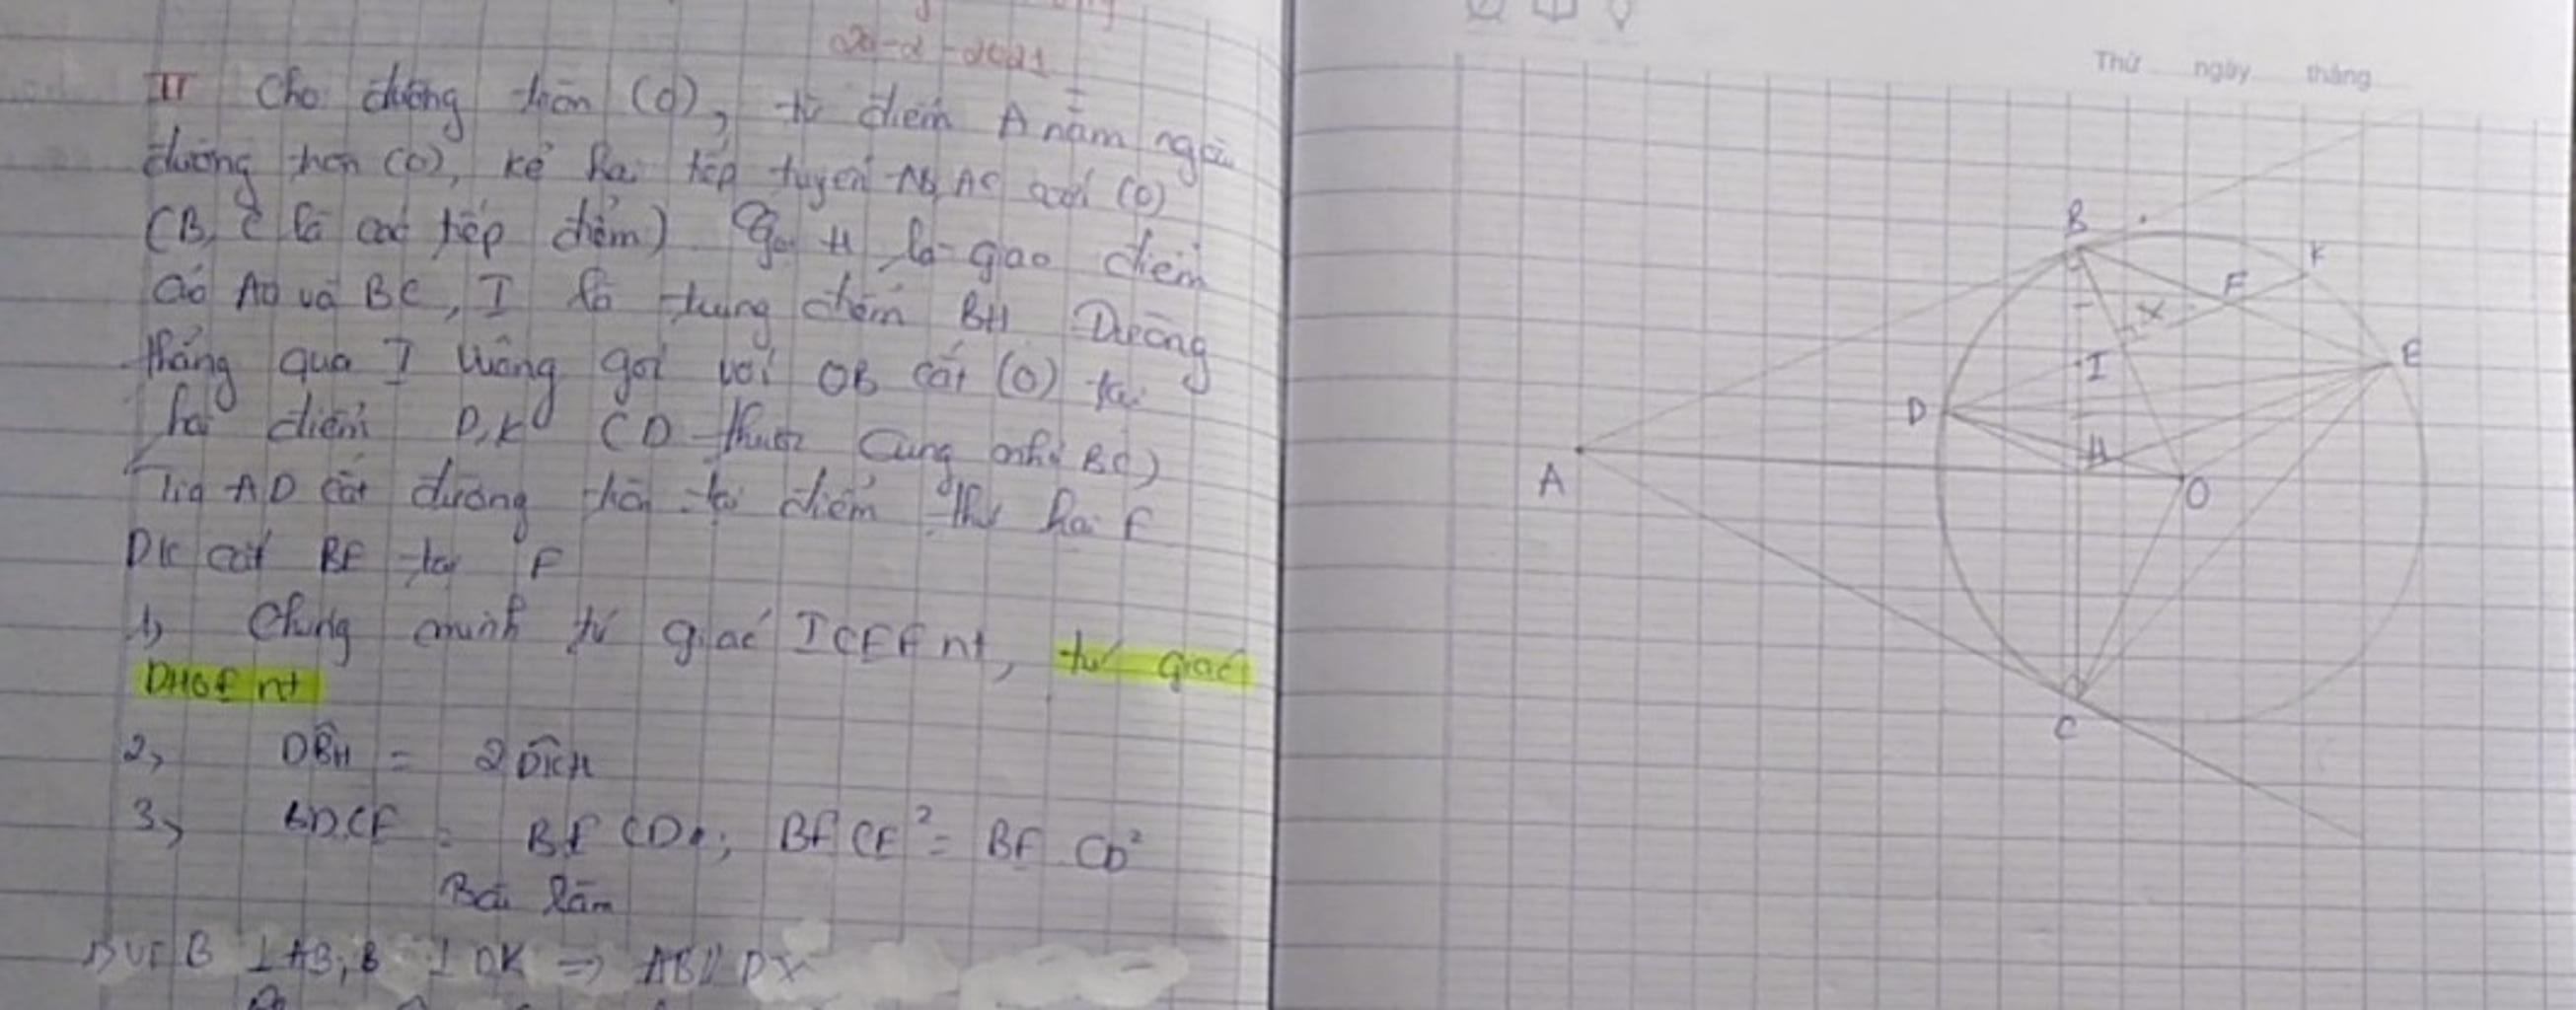 20-2-2021
II Cho đường tròn (O), từ điểm A nằm ngoài
đường tròn (O), kẻ hai tiếp tuyến AB, AC với (O)
(B, C là các tiếp điểm) Gọi H là giao điểm
AO và BC, I là trung điểm BH Đường
thẳng qua I vuông góc với OB cắt (O) tại
hai điểm D, K (D thuộc cung nhỏ BC)
Tia AD cắt đường tròn tại điểm thứ hai E
DK cắt BE tại F
1, Chứng minh tứ giác ICEF nt, tứ giác
DHOE nt
2, DBH = 2 DKH
3, BD CE = BE CD; BF CE² = BE CD²
Bài làm
⊥ AB; B ⊥ DK => AB // DK
Thứ ngày tháng
B
K
F
X
E
I
D
H
A
O
C